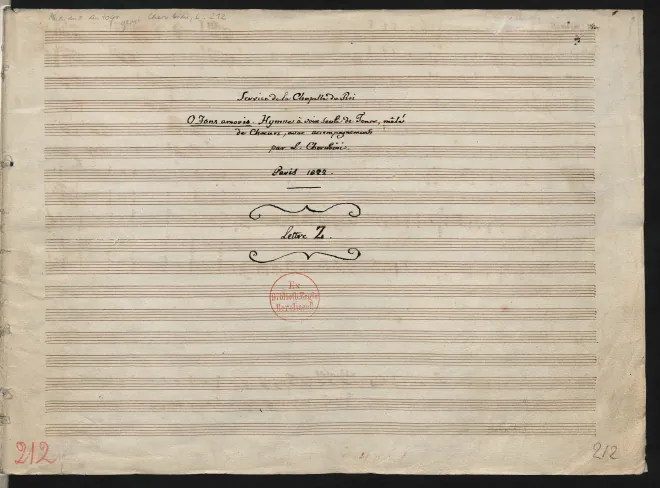 Service de la Chapelle du Roi
O fons amoris. Hymne à voix seule de Tenor, mêlé
de Chœurs, avec accompagnements
par L. Cherubini.
Paris 1822.
Lettre Z.
Ex
212
212